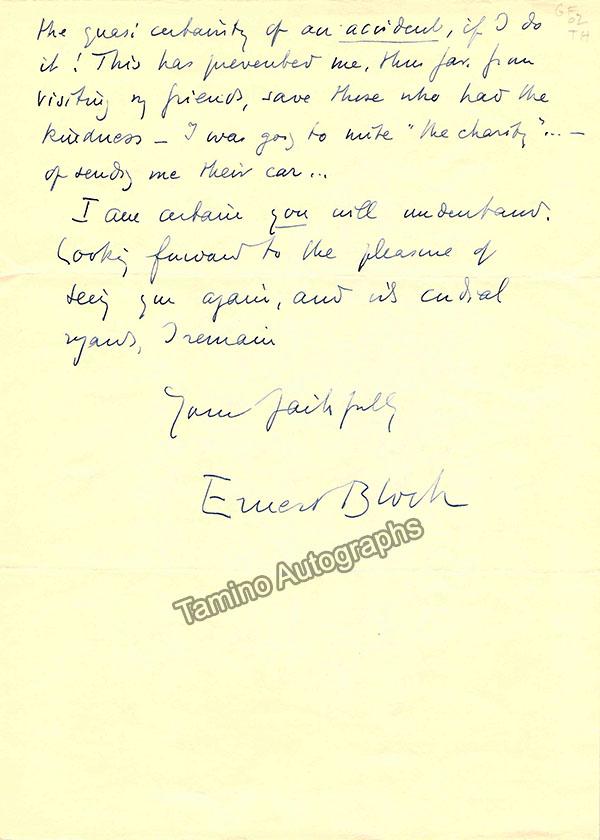 the quasi certainity of an accident, if I do
it! This has prevented me, thus far, from
visiting my friends, save those who had the
kindness – I was going to write "the charity"... –
of sending me their car...
I am certain you will understand.
Looking forward to the pleasure of
seeing you again, and with cordial
regards, I remain
Yours faithfully
Ernest Bloch
Tamino Autographs
GF
02
TH